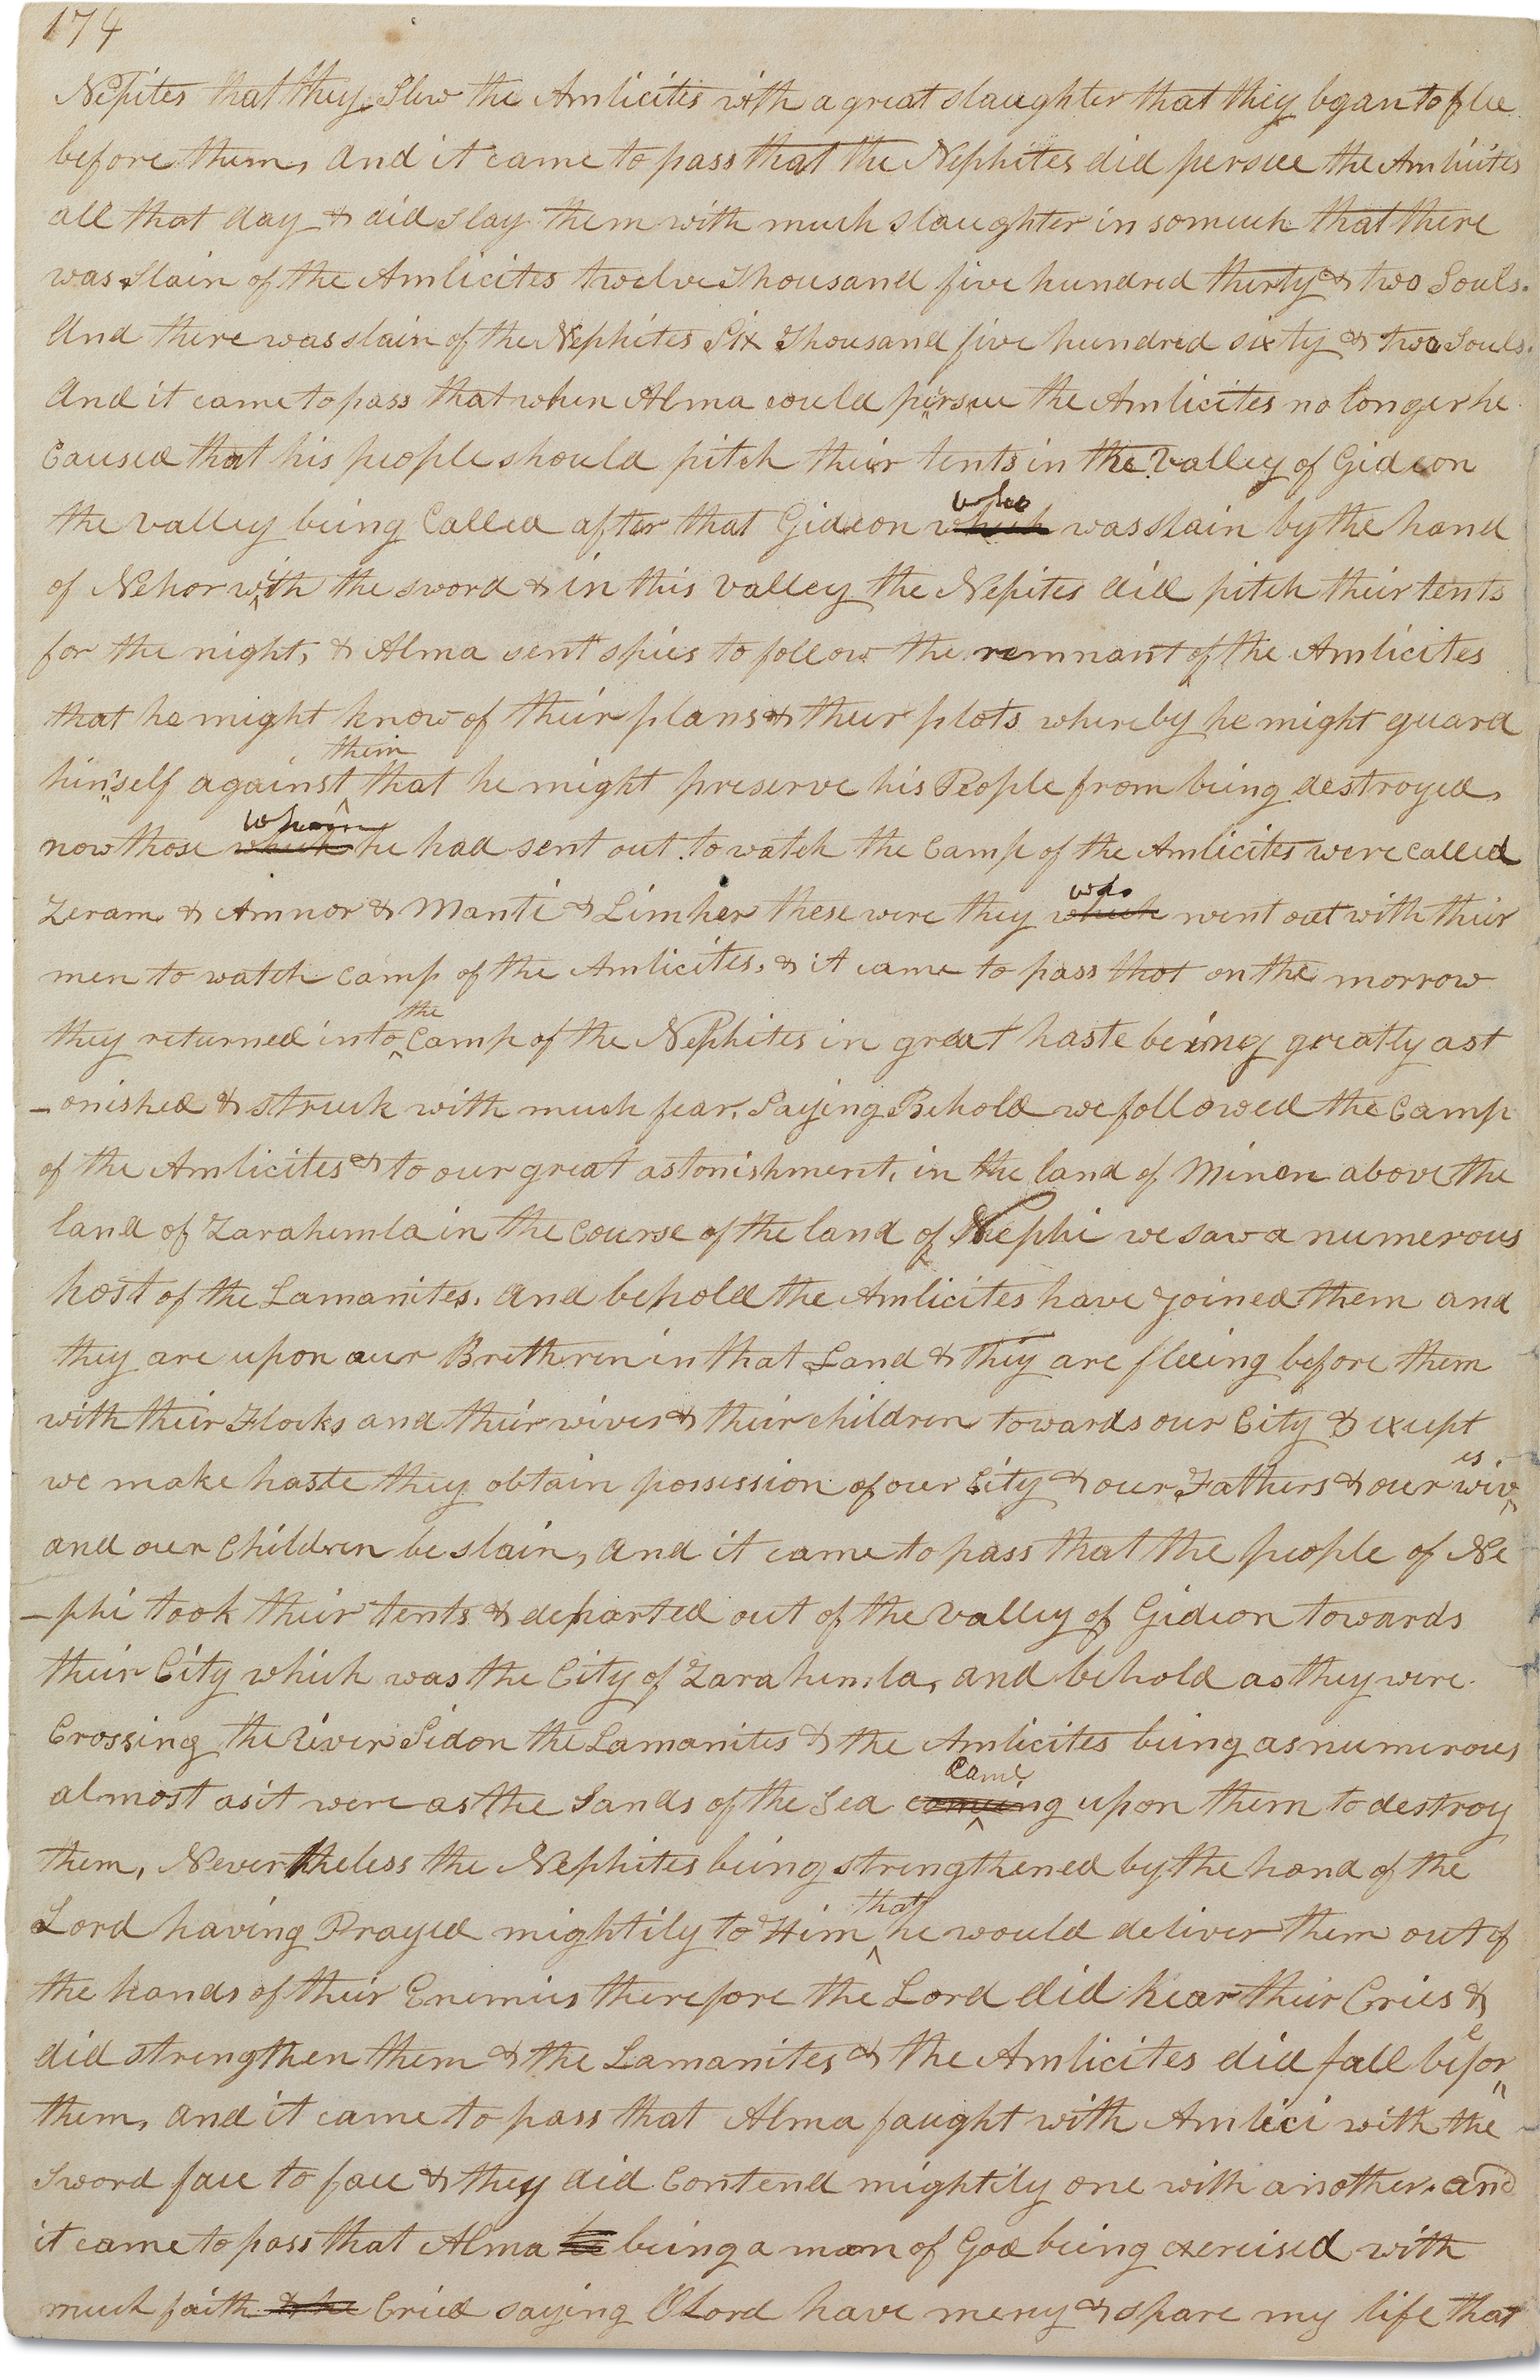 174
Nepites that they Slew the Amlicites with a great slaughter that they bgan to flee
before them, And it came to pass that the Nephites did persue the Amlicites
all that day & did slay them with much slaughter in somuch that there
was Slain of the Amlicites twelve Thousand five hundred thirty & two Souls.
And there was slain of the Nephites Six Thousand five hundred sixty & two Souls.
And it came to pass that when Alma could persue the Amlicites no longer he
Caused that his people should pitch their tents in the Valley of Gideon
the valley being Called after that Gideon which who was slain by the hand
of Nehor with the sword & in this valley the Nepites did pitch their tents
for the night, & Alma sent spies to follow the remnant of the Amlicites
that he might know of their plans & their plots whereby he might guard
himself against them that he might preserve his People from being destroyed,
now those which whom he had sent out to watch the Camp of the Amlicites were called
Zeram & Amnor & Manti & Limher these were they which who went out with their
men to watch camp of the Amlicites, & it came to pass that on the morrow
they returned into the Camp of the Nephites in great haste being greatly ast
-onished & struck with much fear, Saying Behold we followed the Camp
of the Amlicites & to our great astonishment, in the land of Minon above the
land of Zarahemla in the Course of the land of Nephi we saw a numerous
host of the Lamanites. And behold the Amlicites have joined them and
they are upon our Brethren in that Land & they are fleeing before them
with their Flocks and their wives & their children towards our City & except
we make haste they obtain possession of our City & our Fathers & our wives
and our Children be slain, And it came to pass that the people of Ne
-phi took their tents & departed out of the Valley of Gideon towards
their City which was the City of Zarahemla, and behold as they were
Crossing the River Sidon the Lamanites & the Amlicites being as numerous
almost as it were as the Sands of the Sea comeing came upon them to destroy
them, Nevertheless the Nephites being strengthened by the hand of the
Lord having Prayed mightily to Him that he would deliver them out of
the hands of their Enemies therefore the Lord did hear their Cries &
did strengthen them & the Lamanites & the Amlicites did fall before
them, And it came to pass that Alma faught with Amlici with the
Sword face to face & they did Contend mightily one with another. and
it came to pass that Alma he being a man of God being exercised with
much faith & he Cried saying O Lord have mercy & spare my life that